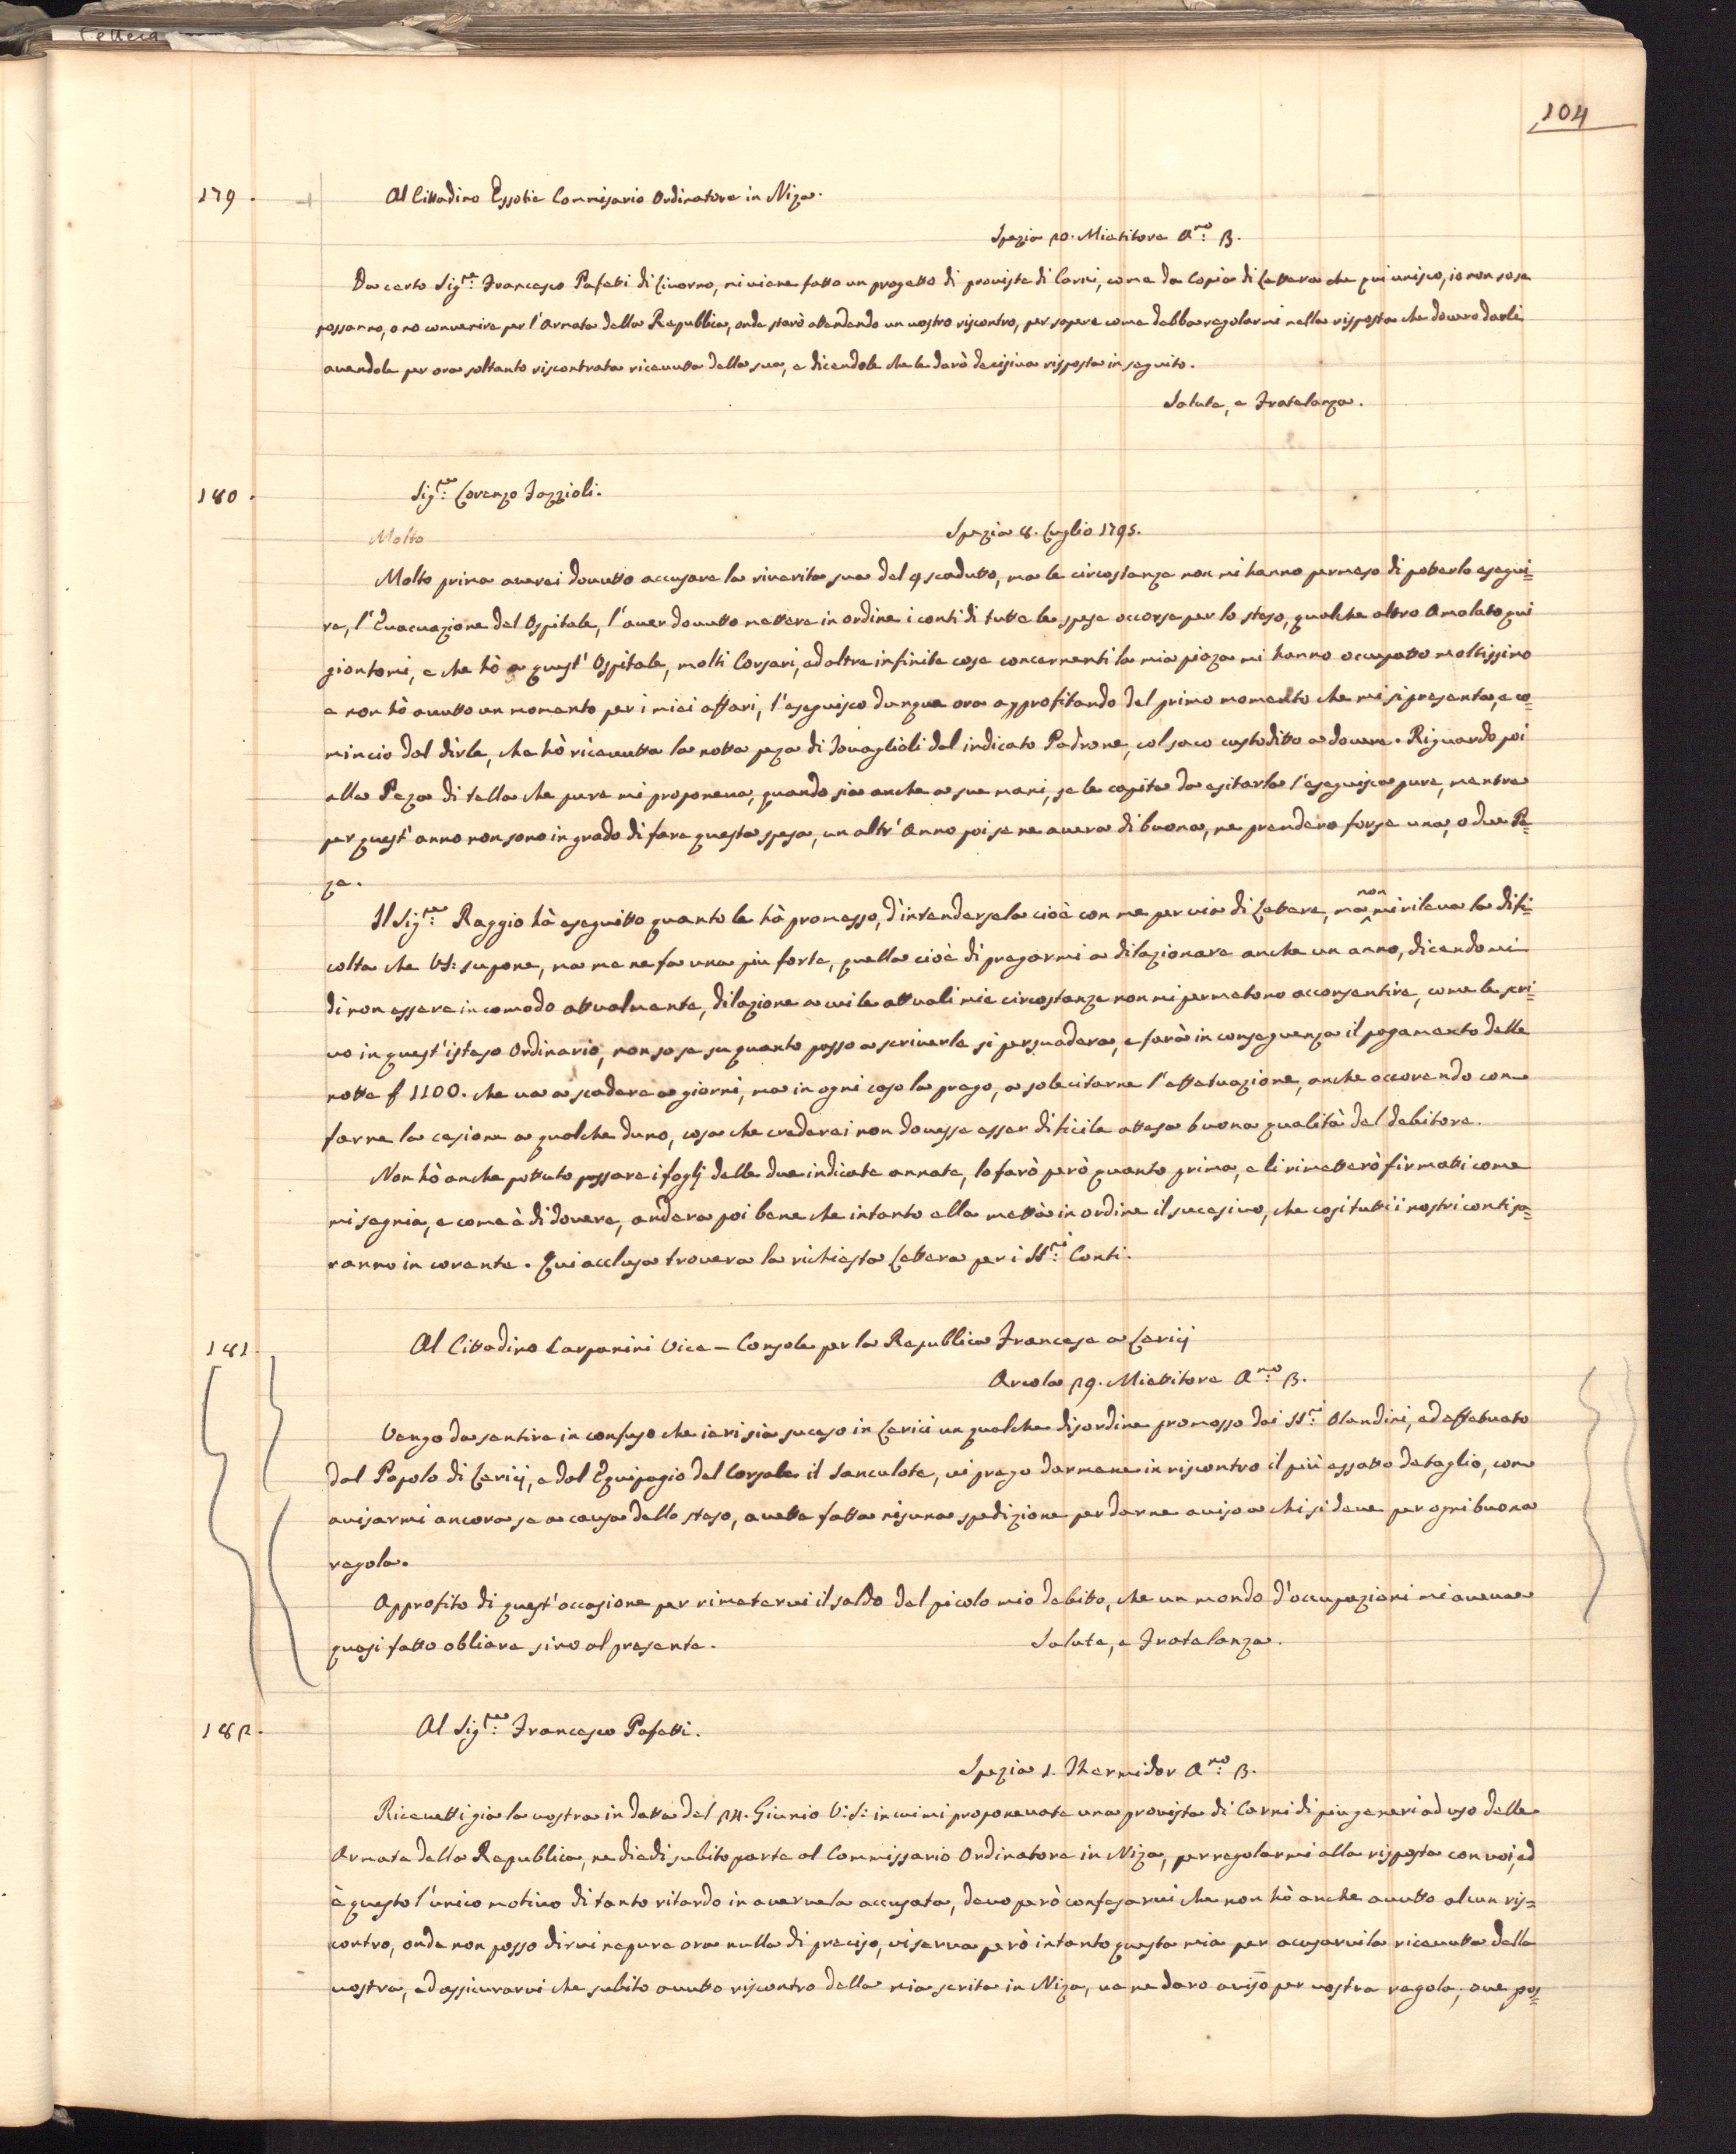 104
179. Al Cittadino Essotie Commisario Ordinatore in Niza.
Spezia 20. Mietitore A.no 3.
Da certo Sig.re Francesco Pafetti di Livorno, mi viene fatto un progetto di proviste di Carni, come da Copia di Lettera che qui unisco, io non so se
possanno, o no convenire per l'Armata della Republica, onde starò attendendo un vostro riscontro, per sapere come debba regolarmi nella risposta che dovero darli
avendole per ora soltanto riscontrata ricevutta della sua, e dicendole che le darò decisiva risposta in seguito.
Salute, e Fratelanza.
180. Sig.re Lorenzo Fazzioli.
Molto
Spezia 8. Luglio 1795.
Molto prima averei dovutto accusare la riverita sua del 9 scadutto, ma le circostanze non mi hanno permeso di potterlo esegui=
re, l'Evacuazione del Ospitale, l'aver dovutto mettere in ordine i conti di tutte le spese occorse per lo steso, qualche altro Amalato qui
giontomi, e che hò a quest' Ospitale, molti Corsari, ed altre infinite cose concernenti la mia piaza mi hanno occupatto moltissimo
e non hò avutto un momento per i miei affari, l'eseguisco dunque ora approfitando del primo momento che mi si presenta, e co=
mincio dal dirle, che hò ricevutta la notta peza di Tovaglioli dal indicato Padrone, col saco custoditto a dovere. Riguardo poi
alla Peza di tella che pure mi proponeva, quando sia anche a sue mani, se le capita da esitarla l'eseguisca pure, mentre
per quest' anno non sono in grado di fare questa spesa, un altr' Anno poi se ne avera di buona, ne prendero forse una, o due Pe=
ze.
Il Sig.re Raggio hà eseguitto quanto le hà promesso, d'intendersela cioè con me per via di Lettere, ma non mi rileva la difi=
colta che VS: supone, ma me ne fa una piu forte, quella cioè di pregarmi a dilazionare anche un anno, dicendomi
di non essere in comodo attualmente, dilazione a cui le attuali mie circostanze non mi permetono acconsentire, come le scri=
vo in quest' isteso Ordinario, non so se su quanto posso a scriverle si persuadera, e farà in conseguenza il pagamento delle
notte f 1100. che va a scadere a giorni, ma in ogni caso la prego, a solecitarne l'effetuazione, anche occorendo con
farne la cesione a qualche duno, cosa che crederei non dovesse esser dificile attesa buona qualità del debitore.
Non hò anche pottuto passare i foglj delle due indicate annate, lo farò però quanto prima, e li rimetterò firmatti come
mi segnia, e come è di dovere, andera poi bene che intanto ella mettà in ordine il sucesivo, che cosi tutti i nostri conti sa=
ranno in corente. Qui acclusa trovera la richiesta Lettera per i SS.ri Conti.
181 Al Cittadino Carpanini Vice - Console per la Republica Francese a Lericj
Arcola 29. Miettitore A.no 3.
Vengo da sentire in confuso che ieri sia suceso in Lerici un qualche disordine promosso dai SS.ri Olandini, ed effetuato
dal Popolo di Lericj, e dal Equipagio del Corsale il Sanculote, vi prego darmene in riscontro il più essatto detaglio, con
avisarmi ancora se a causa dello steso, avette fatta nisuna spedizione per darne aviso a chi si deve per ogni buona
regola.
Approfito di quest' occasione per rimetervi il saldo del picolo mio debitto, che un mondo d'occupazioni mi aveva
quasi fatto obliare sino al presente.
Salute, e Fratelanza.
182. Al Sig.re Francesco Pafetti.
Spezia 1. Thermidor A.no 3.
Ricevetti già la vostra in datta del 24. Giunio V: S: in cui mi proponevate una provista di Carni di piu generi ad uso delle
Armate della Republica, ne diedi subito parte al Commissario Ordinatore in Niza, per regolarmi alla risposta con voi, ed
è questo l'unico motivo di tanto ritardo in avervela accusata, devo però confesarvi che non hò anche avutto alcun ris=
contro, onde non posso dirvi nepure ora nulla di preciso, vi serva però intanto questa mia per acusarvi la ricevutta della
vostra, ed assicurarvi che subito avutto riscontro della mia scrita in Niza, ve ne daro aviso per vostra regola, ove pos=